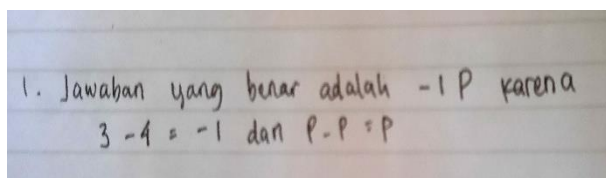 1. Jawaban yang benar adalah -1 P karena
3 - 4 = -1 dan P - P = P